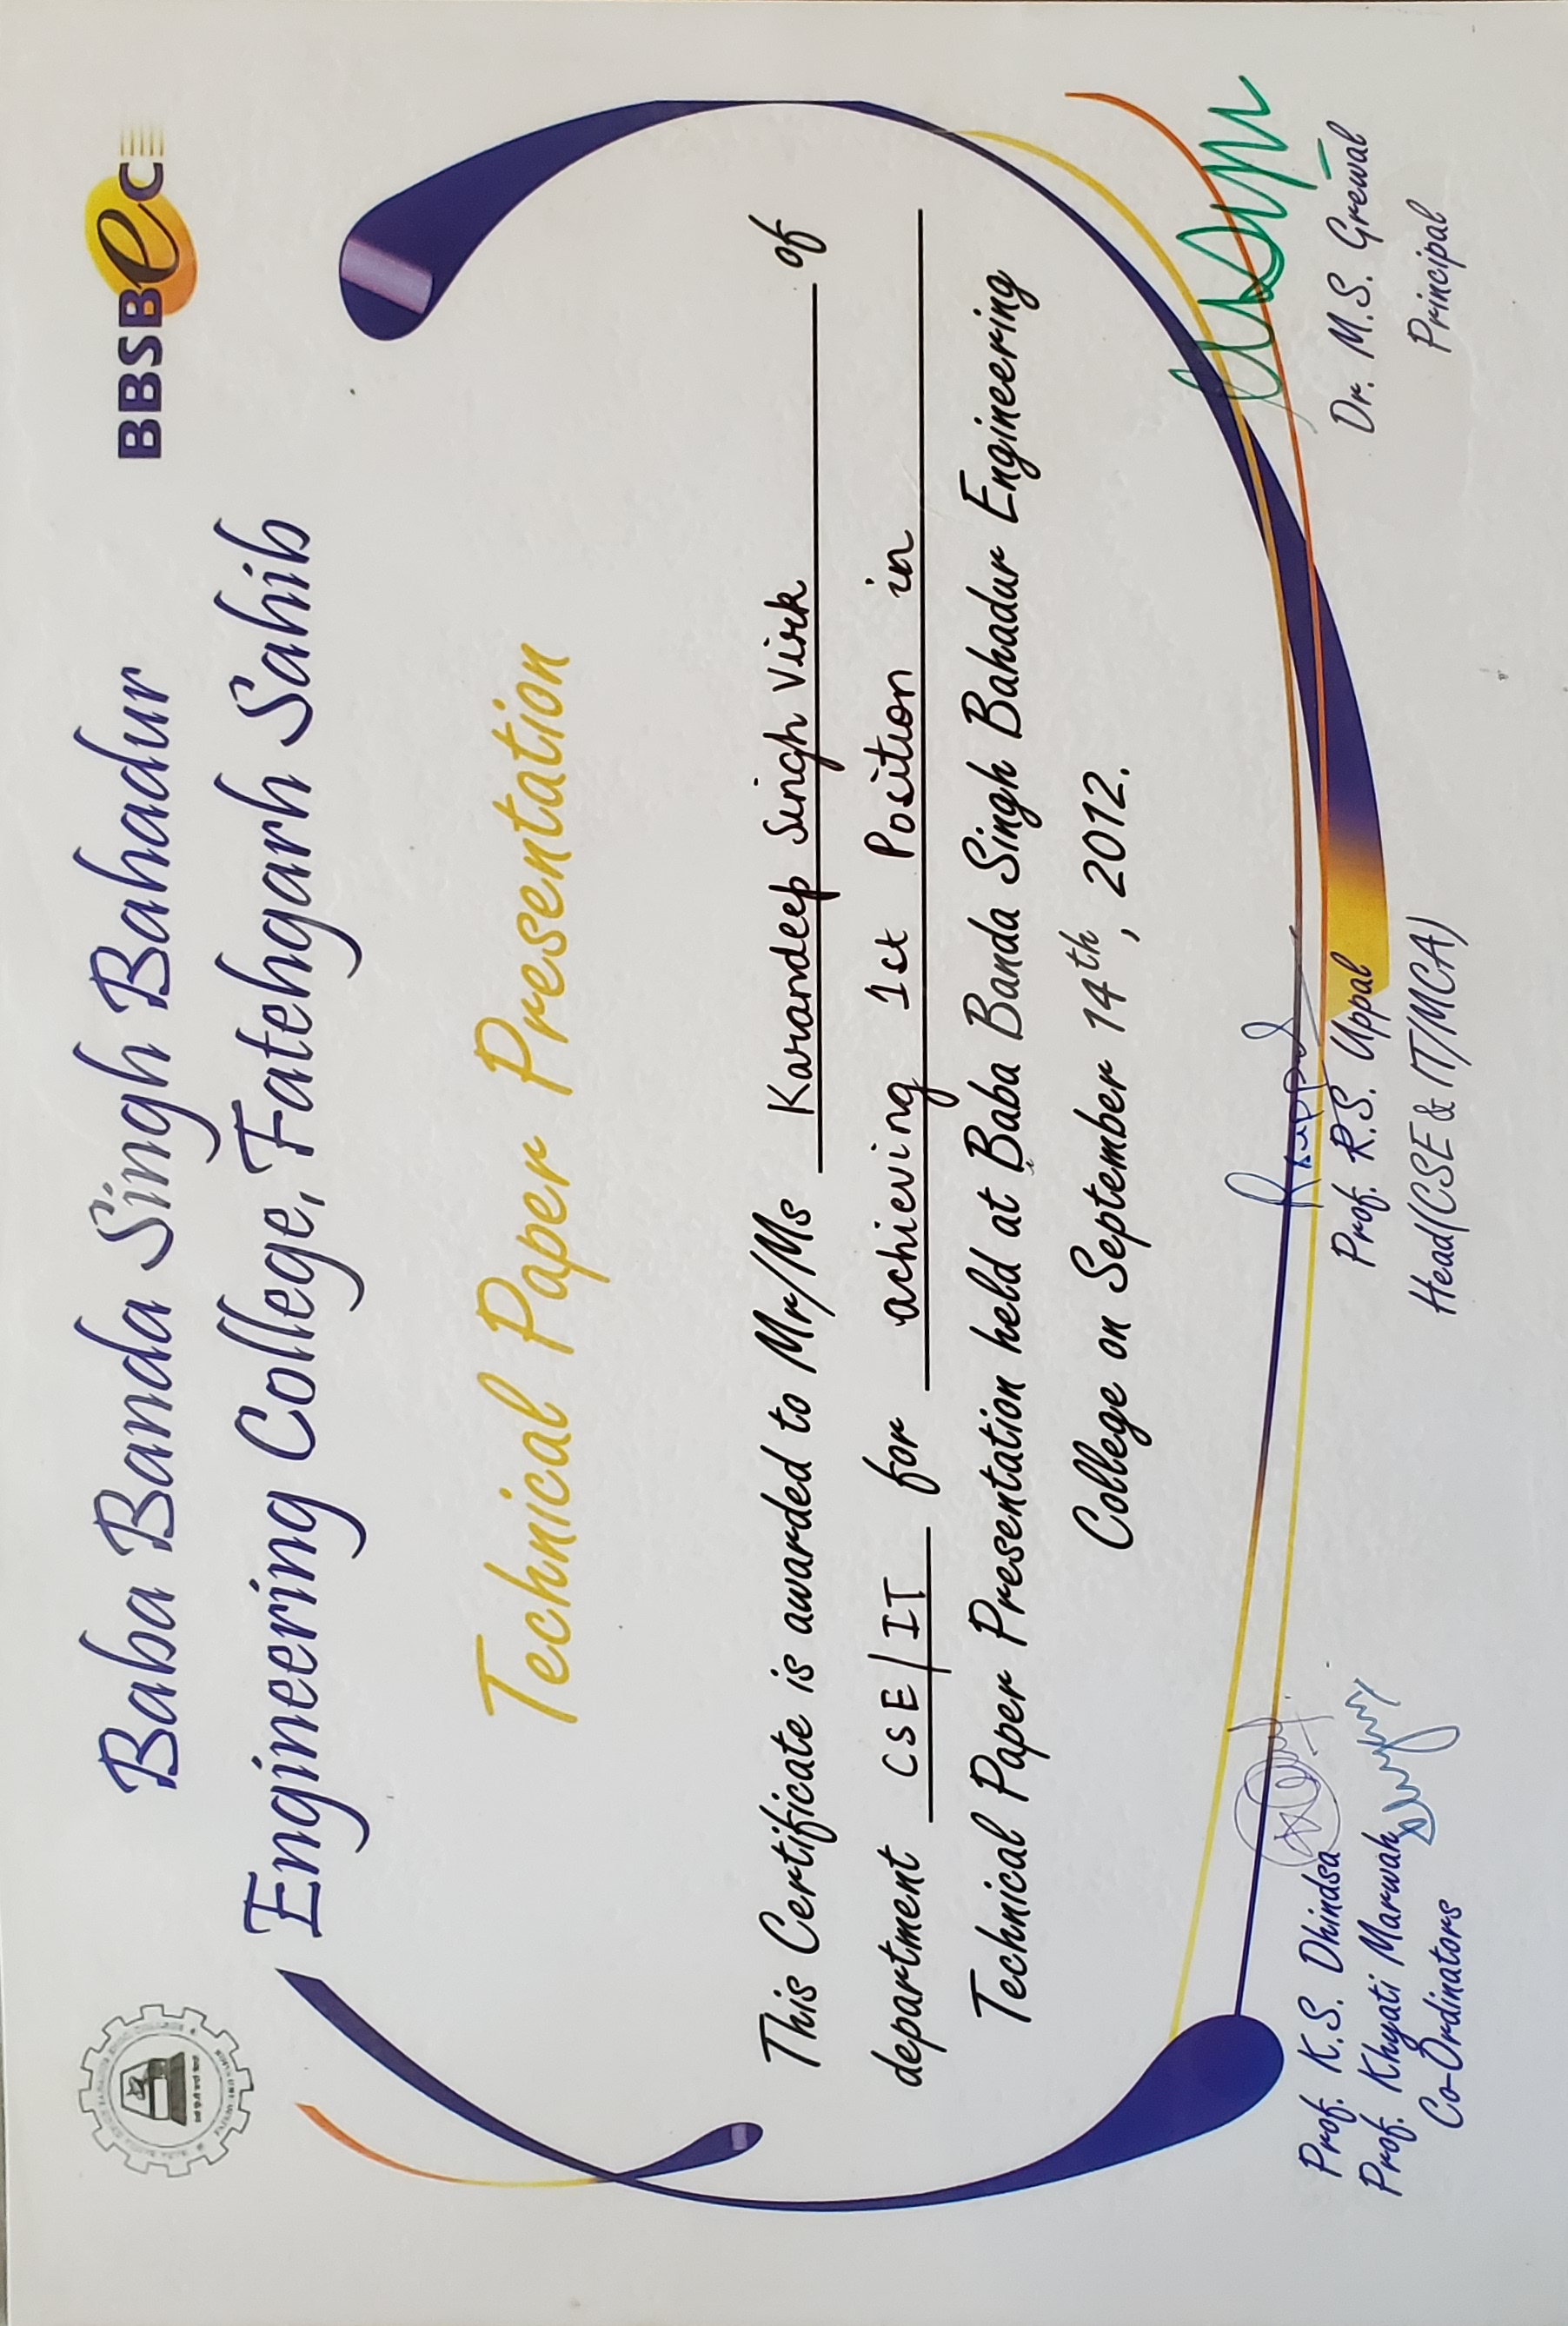 Baba Banda Singh Bahadur
BBSBeC
Engineering College, Fatehgarh Sahib
Technical Paper Presentation
This Certificate is awarded to Mr/Ms Karandeep Singh Virk of
department CSE/IT for achieving 1st Position in
Technical Paper Presentation held at Baba Banda Singh Bahadur Engineering
College on September 14th, 2012.
Rsuppal
Prof. K.S. Dhindsa
Prof. Khyati Marwah
Co-Ordinators
Prof. R.S. Uppal
Head(CSE & IT/MCA)
Dr. M.S. Grewal
Principal